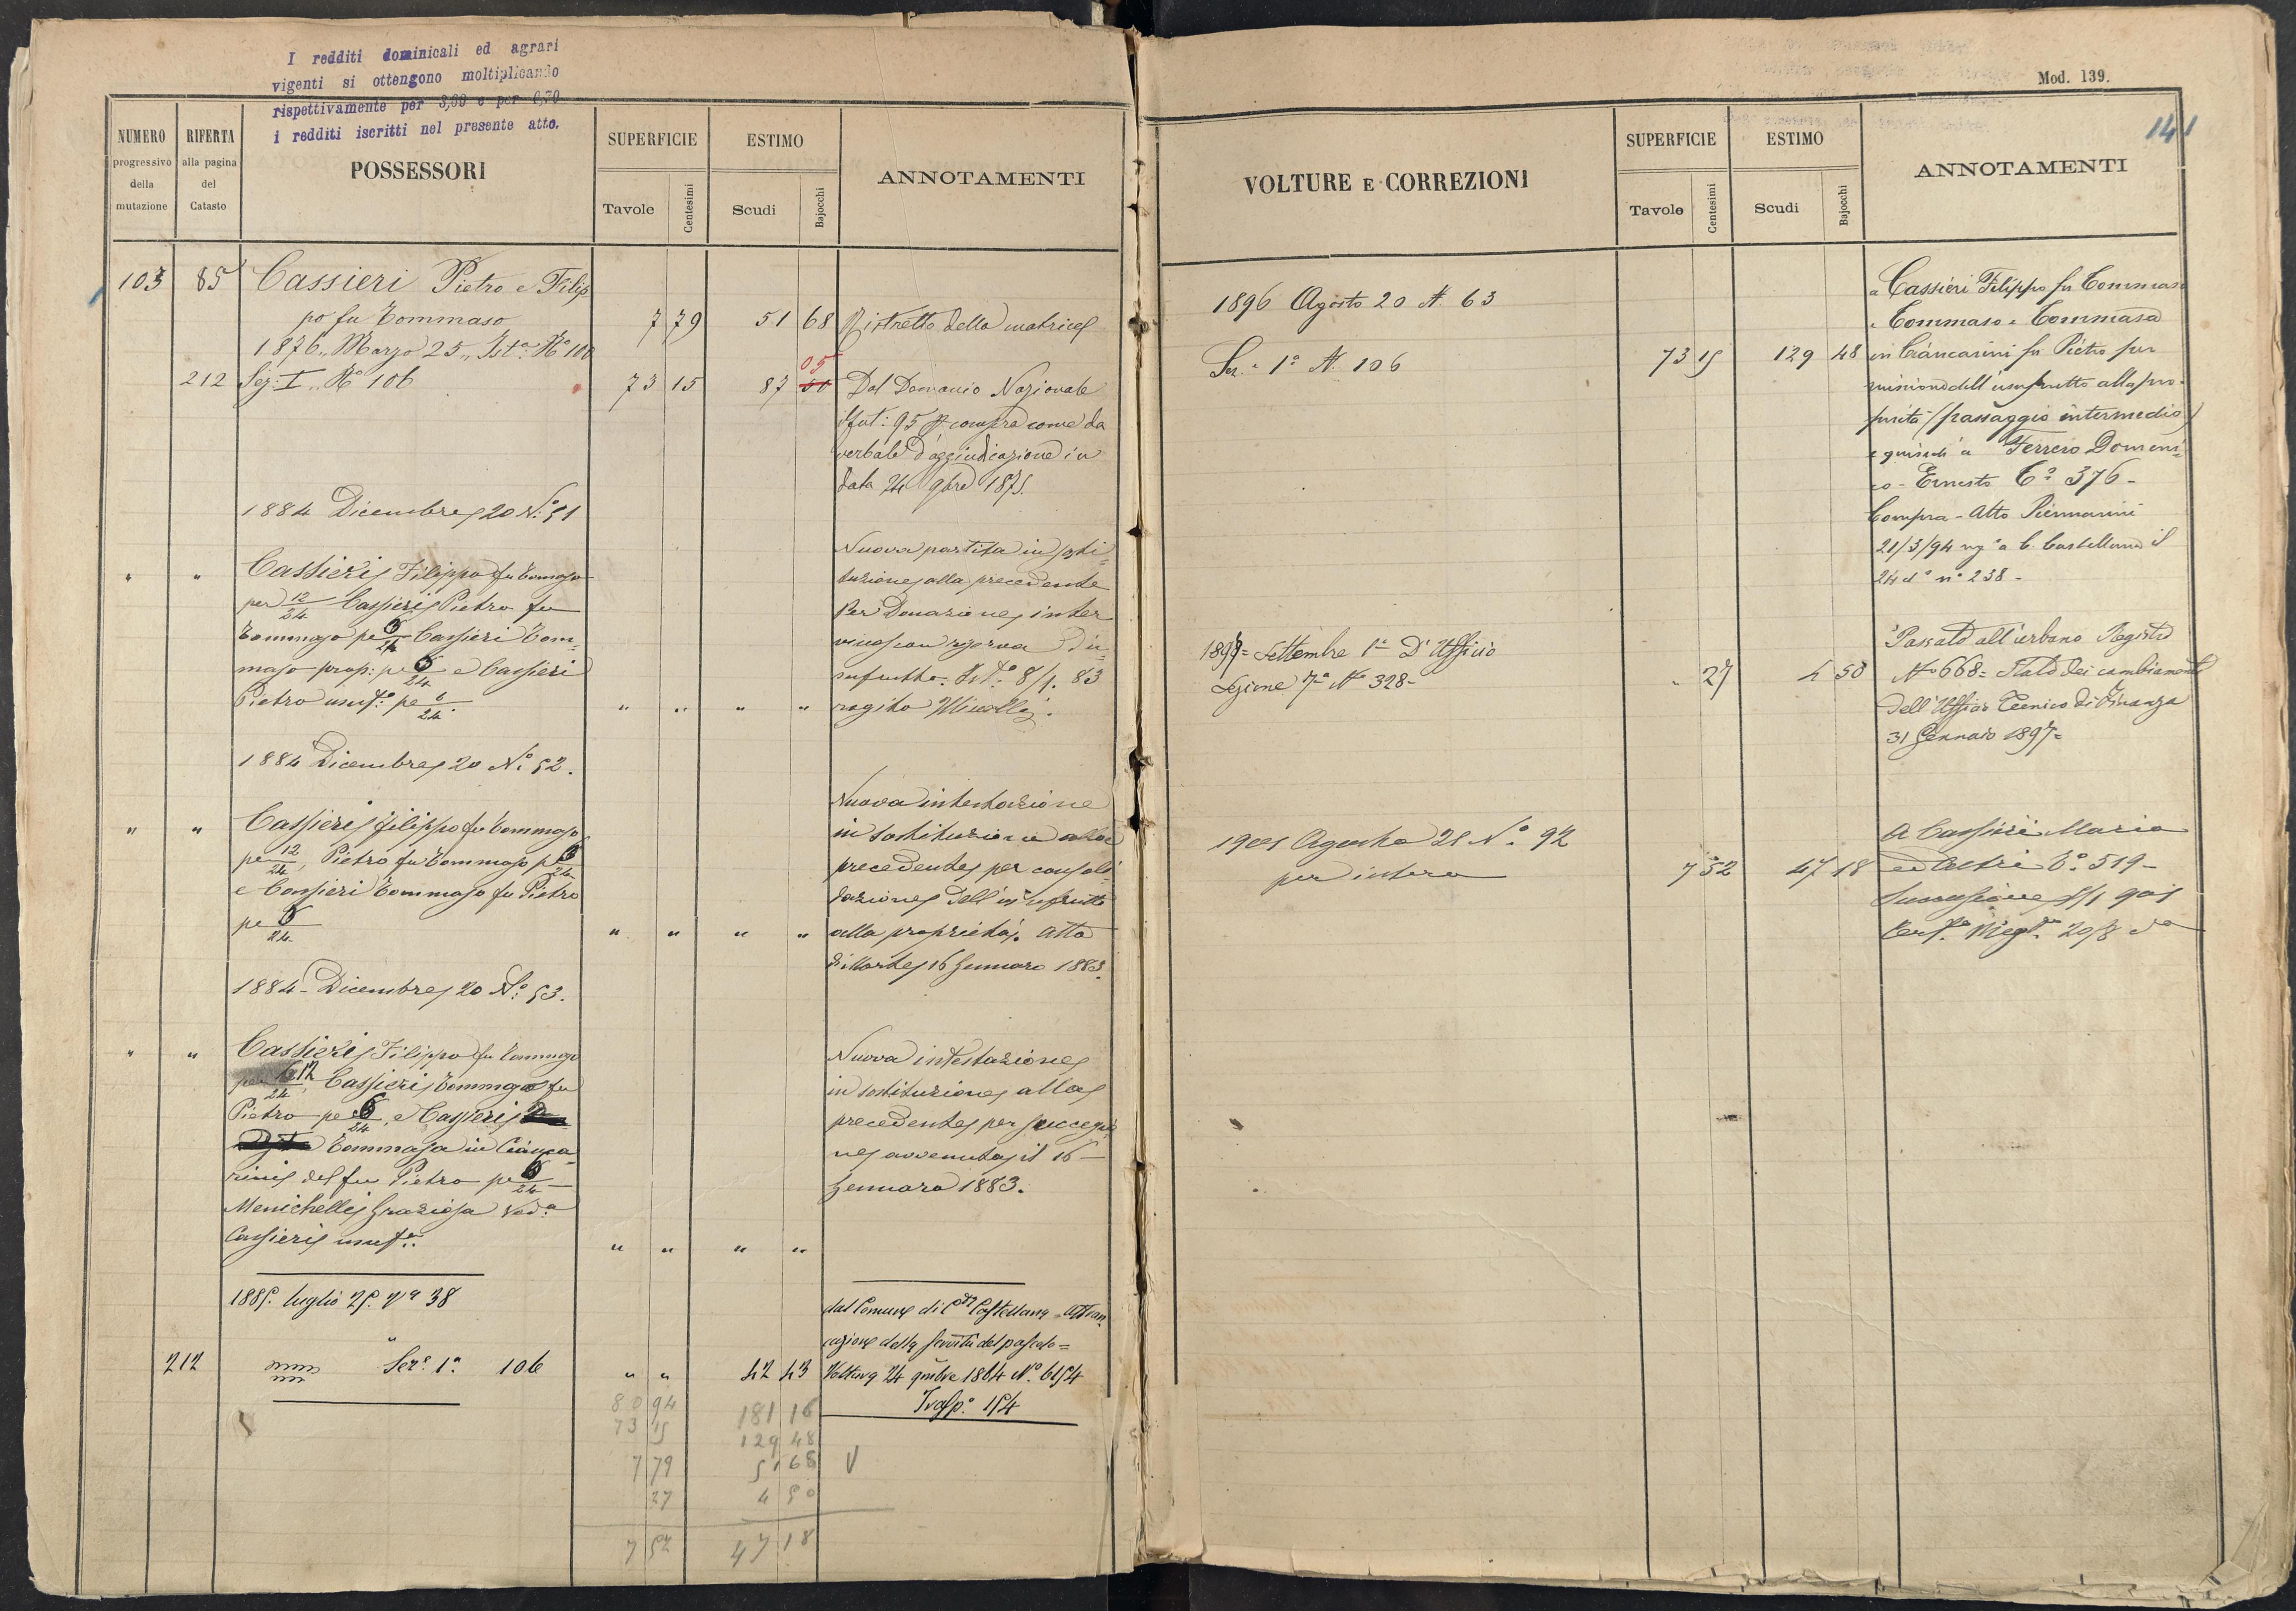 I redditi dominicali ed agrari
vigenti si ottengono moltiplicando
rispettivamente per 3,60 e per 6,70
i redditi iscritti nel presente atto.
NUMERO
progressivo
della
mutazione
RIFERTA
alla pagina
del
Catasto
POSSESSORI
SUPERFICIE
Tavole
Centesimi
ESTIMO
Scudi
Bajocchi
ANNOTAMENTI
103 85 Cassieri Pietro e Filip
po fu Tommaso 7 79 51 68 Ristretto della matrice
1876 Marzo 25 Ist.a No 100
212 Sez: I No 106 73 15 87 05 51 Dal Demanio Nazionale
95 compra come da
verbale d'aggiudicazione in
data 24 9bre 1875.
1884 Dicembre 20 No 51
" " Cassieri Filippo fu Tomaso
per 12/24 Cassieri Pietro fu
Tommaso per 6/24 Cassieri Tom=
maso prop: per 6/24 e Cassieri
Pietro usuf: per 6/24
" " " "
Nuova partita in sosti=
tuzione alla precedente
Per Donazione inter
vivos con riserva d'u=
sufrutto. Ist.o 8/1. 83
rogito
1884 Dicembre 20 No 52.
" " Cassieri Filippo fu Tommaso
per 12/24, Pietro fu Tommaso p 6/24
e Cassieri Tommaso fu Pietro
per 6/24
" " " "
Nuova intestazione
in sostituzione alla
precedente per consoli=
dazione dell'usufrutto
alla proprietà. Atto
di Morte 16 Gennaro 1883.
1884 - Dicembre 20 No 53.
" " Cassieri Filippo fu Tommaso
per 12/24, Cassieri Tommaso fu
Pietro per 6/24, e Cassieri
Tommasa in Cianca=
rini del fu Pietro per 6/24
Menichelli Graziosa Ved.a
Cassieri usuf.a
" " " "
Nuova intestazione
in sostituzione alla
precedente per successio
ne avvenuta il 16
Gennaro 1883.
1885. luglio 25. No 38
"
212 Sez.e 1a 106 " " 42 43
dal Comune di Castellana Affran
cazione della servitù del pascolo =
Voltura 24 9mbre 1884 No. 6154
Trasp.o 154
80 94 181 16
73 15 129 48
7 79 51 68 V
27 4 50
7 52 47 18
Mod. 139.
141
VOLTURE E CORREZIONI
SUPERFICIE
Tavole
Centesimi
ESTIMO
Scudi
Bajocchi
ANNOTAMENTI
1896 Agosto 20 N. 63
Sez.e 1a N. 106 73 15 129 48
a Cassieri Filippo fu Tommaso
e Tommaso e Tommasa
in Ciancarini fu Pietro per
riunione dell'usufrutto alla pro=
prietà (passaggio intermedio)
e quindi a Ferrero Domeni=
co - Ernesto Co 376 -
Compra - Atto Piermarini
21/3/94 rega C. Castellana il
24 do no 238 -
1897 = Settembre 1o D'Ufficio
Sezione 7a No 328 - " 27 4 50
Passato all'urbano Registro
No 668 = Stato dei cambiamenti
dell'Ufficio Tecnico di Finanza
31 Gennaio 1897 =
1901 Agosto 21 No 92
per intero 7 52 47 18
A Cassieri Maria
ed altri Co 519 -
Successione